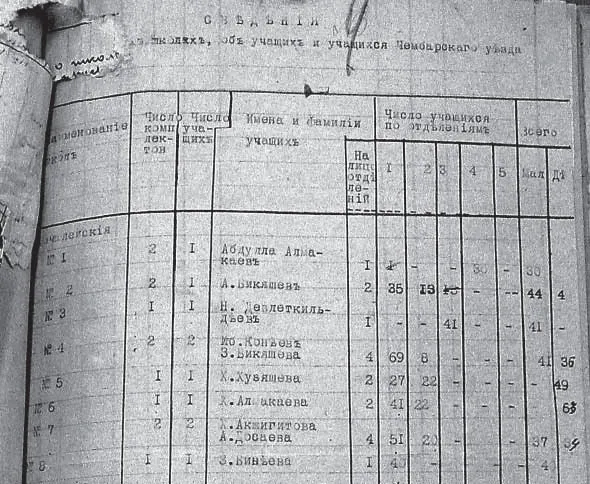 СВѢДѢНІЯ
школахъ, объ учащихъ и учащихся Чембарскаго уѣзда
Наименованіе школъ | Число комплектовъ | Число учащихъ | Имена и Фамиліи учащихъ | На лицо отдѣленій | Число учащихся по отдѣленіямъ 1 2 3 4 5 | Всего Мал Дѣ
№ 1 2 I Абдулла Алма-
каевъ I - - 30 - 30
№ 2 2 I А.Бикяшевъ 2 35 13 - -- 44 4
№ 3 I I Н. Девлеткиль-
дѣевъ I - - 41 - - 41 -
№ 4 2 2 Иб.Конѣевъ
З.Бикяшева 4 69 8 - - - 41 36
№ 5 I I Х.Хузяшева 2 27 22 - - - - 49
№ 6 I I Х.Алмакаева 2 41 22 - - - - 63
№ 7 2 2 Х.Акжигитова
А.Досаева 4 51 20 - - - 37
№ 8 I I З.Бикѣева I - - - - 4